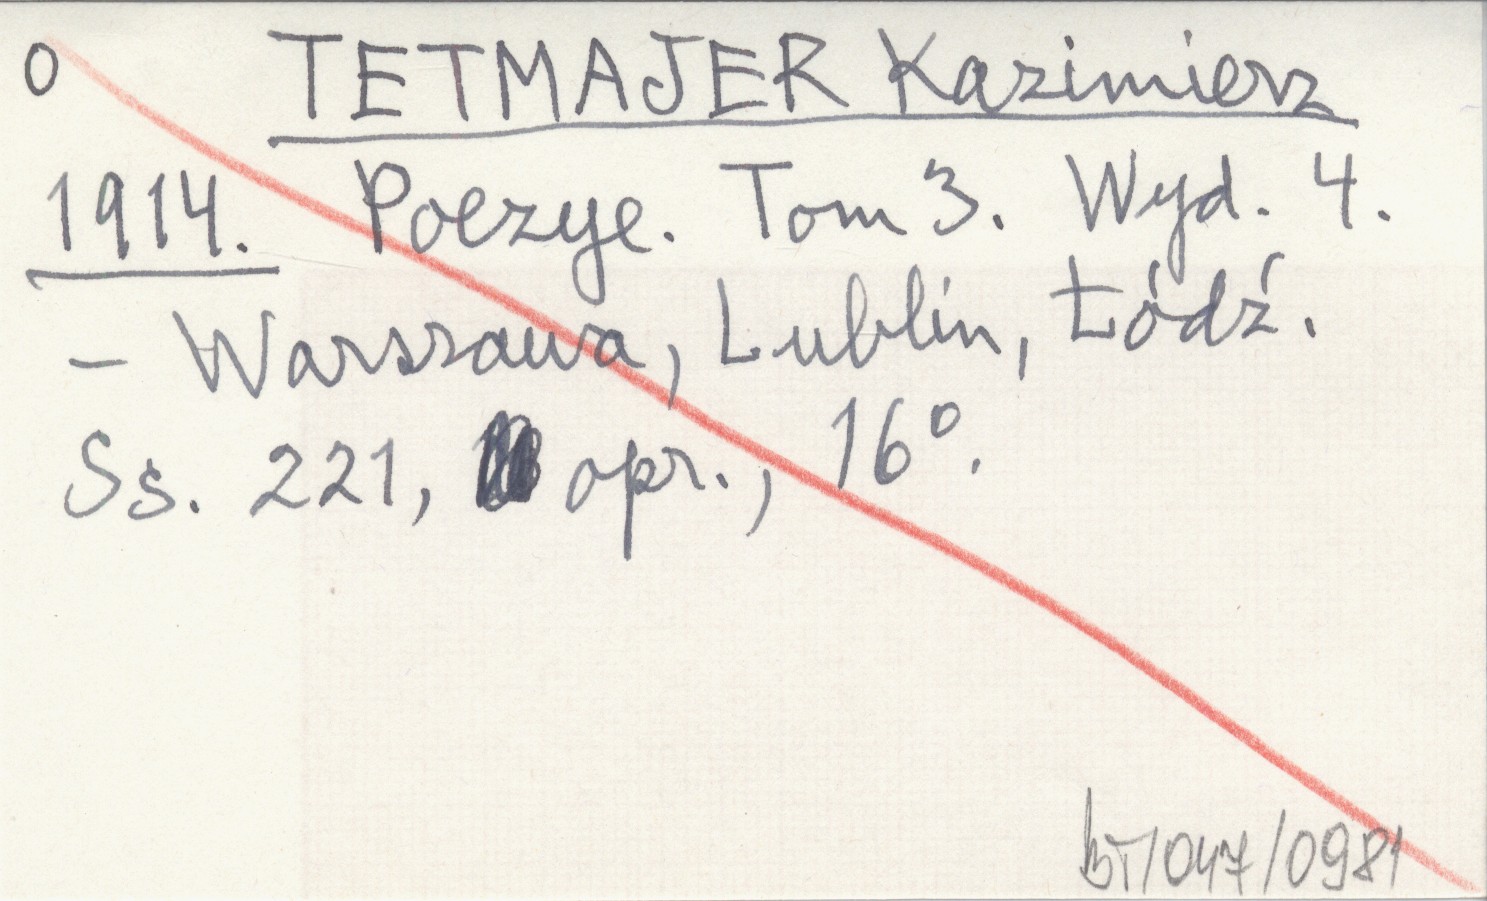 0 TETMAJER Kazimierz
1914. Poezye. Tom 3. Wyd. 4.
– Warszawa, Lublin, Łódź.
Ss. 221, opr., 16º.
/047/0981